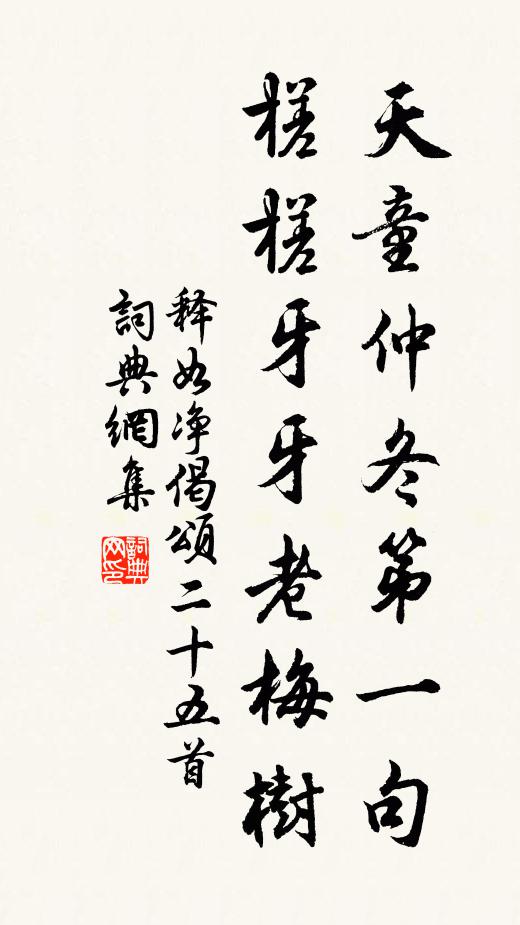 天童仲冬第一句
槎槎牙牙老梅樹
释如净偈頌二十五首
詞典網集
詞典网印